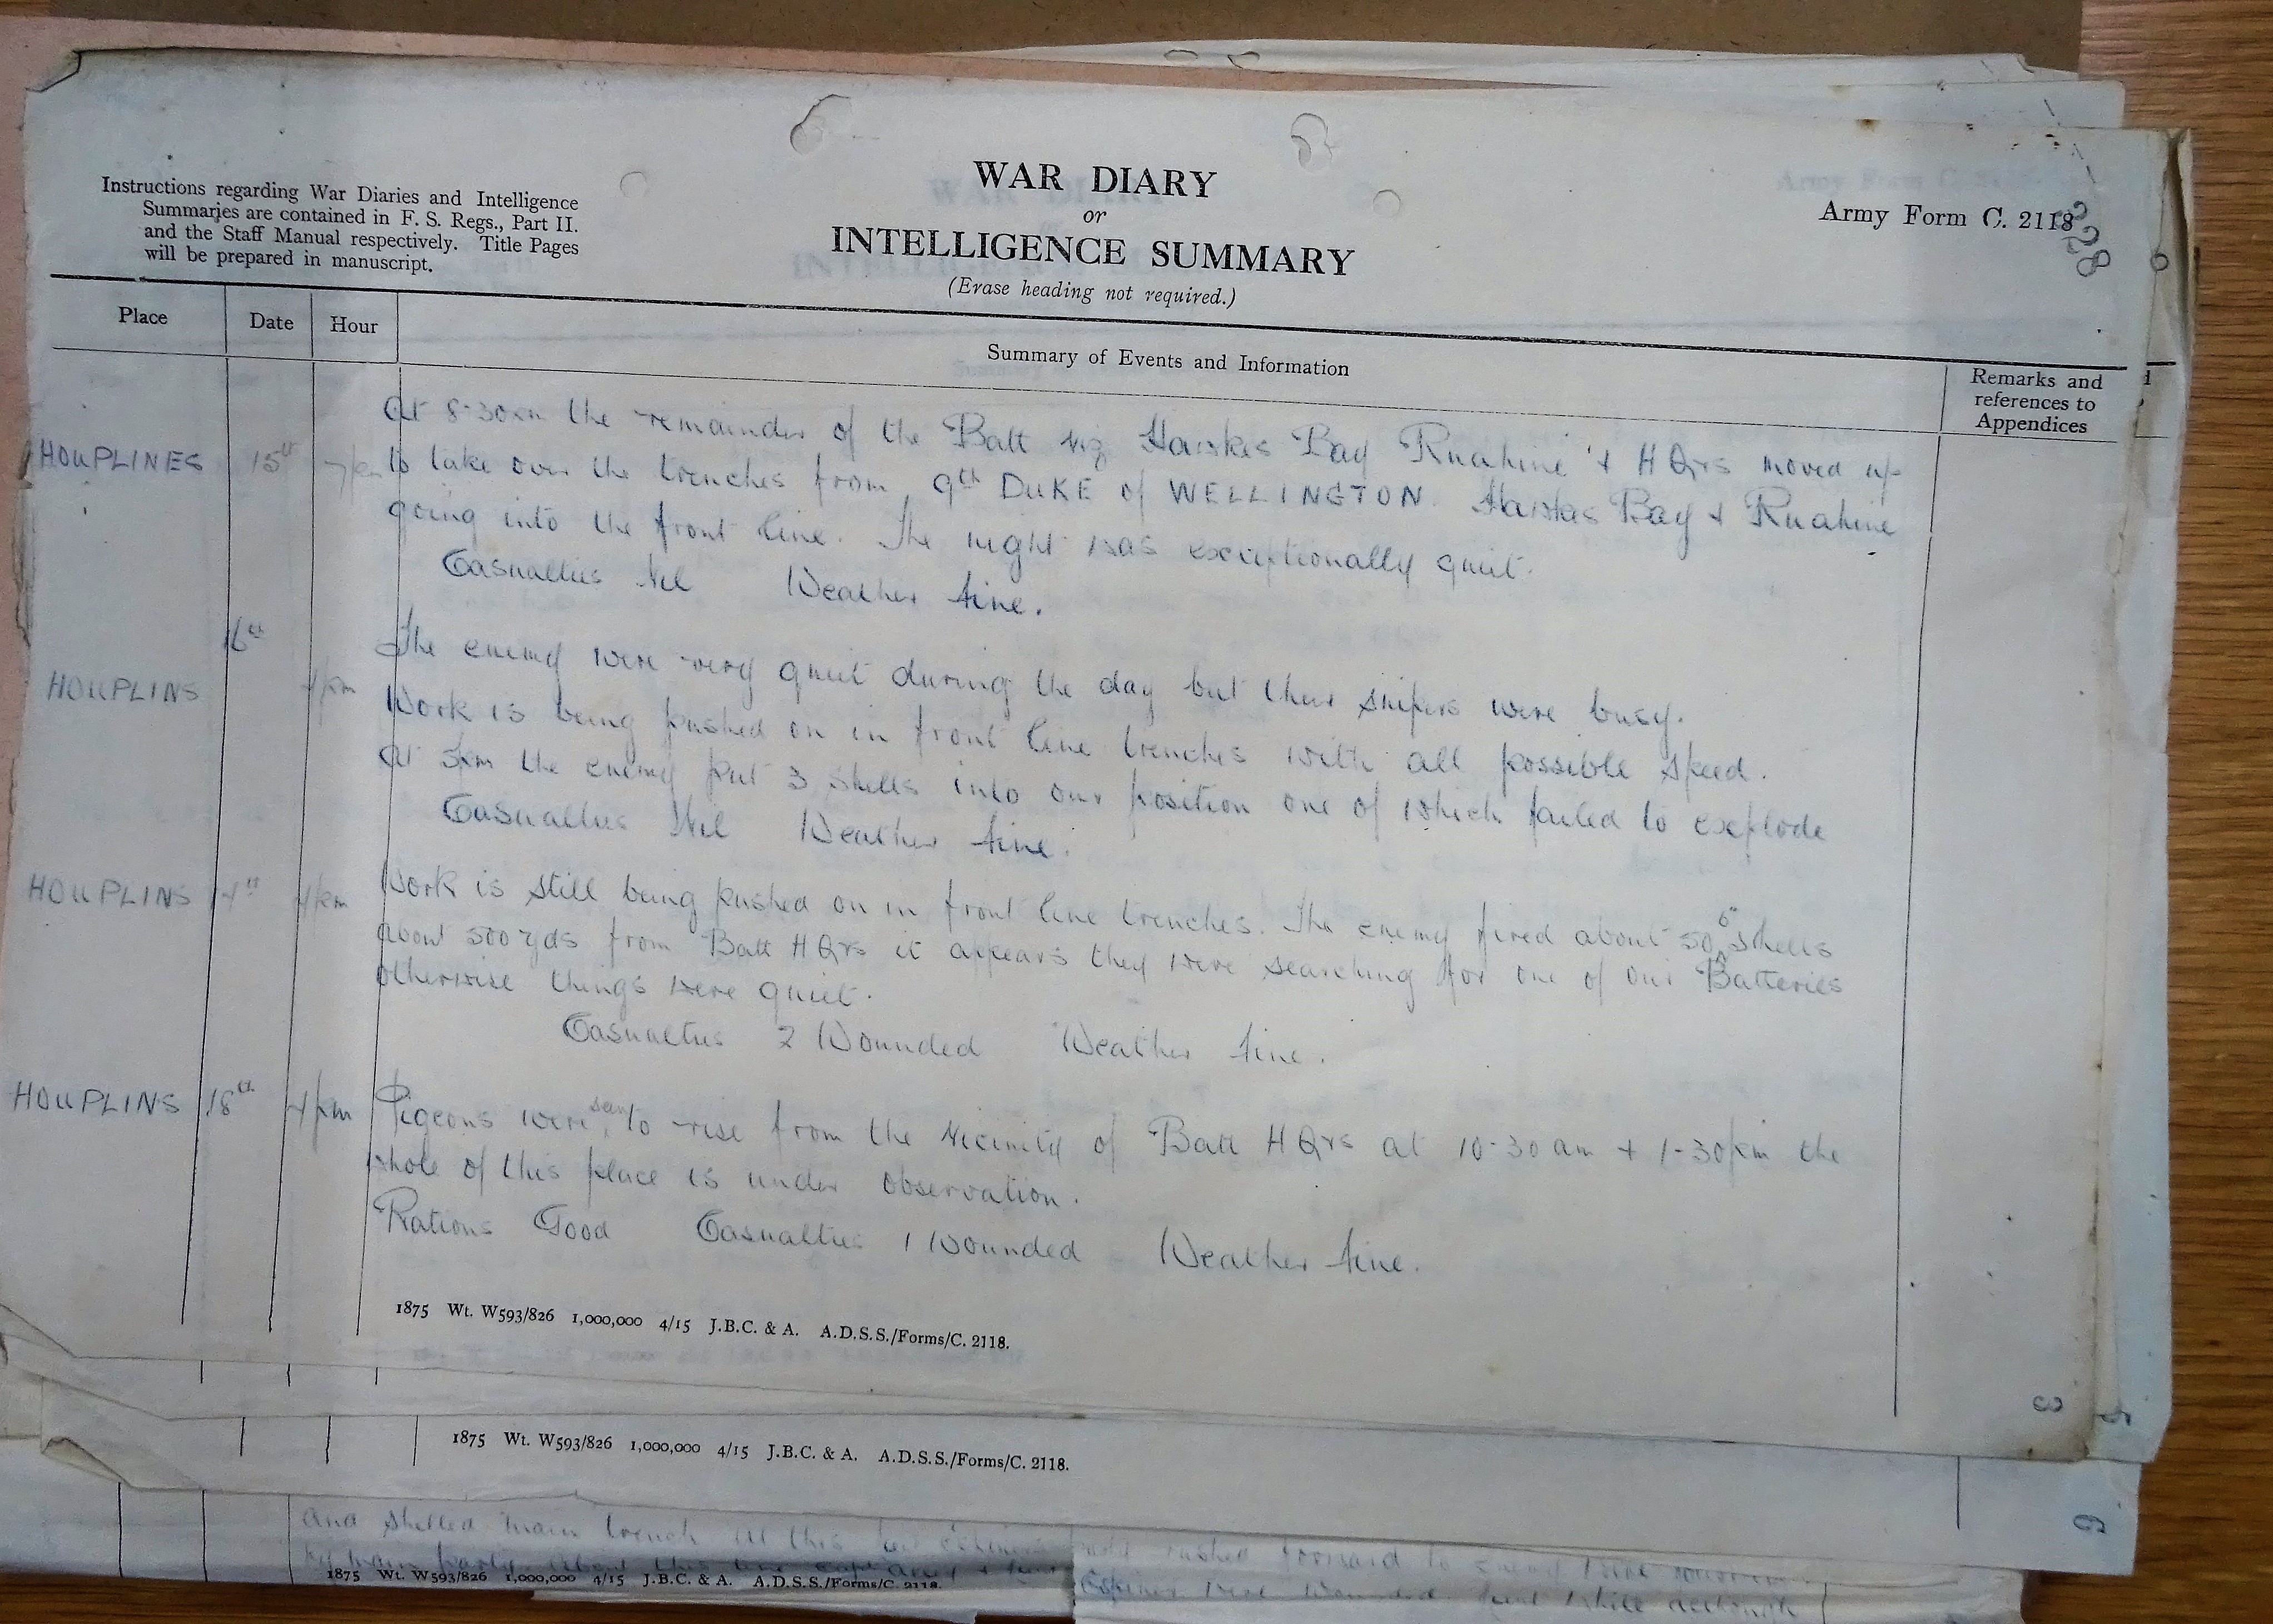 Instructions regarding War Diaries and Intelligence
Summaries are contained in F. S. Regs., Part II.
and the Staff Manual respectively. Title Pages
will be prepared in manuscript.
WAR DIARY
or
INTELLIGENCE SUMMARY
(Erase heading not required.)
Army Form C. 2118
328
Place Date Hour Summary of Events and Information Remarks and
references to
Appendices
At 8-30am the remainder of the Batt viz Hawkes Bay Ruahine & H Qrs moved up
HOUPLINES 15th 7pm to take over the trenches from 9th DUKE of WELLINGTON. Hawkes Bay & Ruahine
going into the front line. The night was exceptionally quiet.
Casualties Nil Weather fine.
16th The enemy were very quiet during the day but their snipers were busy.
HOUPLINS 7pm Work is being pushed on in front line trenches with all possible speed.
At 5pm the enemy put 3 shells into our position one of which failed to explode
Casualties Nil Weather fine.
HOUPLINS 17th 7pm Work is still being pushed on in front line trenches. The enemy fired about 50 6" shells
about 500 yds from Batt H Qrs it appears they were searching for one of our Batteries
otherwise things were quiet.
Casualties 2 Wounded Weather fine.
HOUPLINS 18th 7pm Pigeons were seen to rise from the vicinity of Batt H Qrs at 10-30 am + 1-30pm the
whole of this place is under observation.
Rations Good Casualties 1 Wounded Weather fine.
1875 Wt. W593/826 1,000,000 4/15 J.B.C. & A. A.D.S.S./Forms/C. 2118.
3
1875 Wt. W593/826 1,000,000 4/15 J.B.C. & A. A.D.S.S./Forms/C. 2118.
and shelled main trench at this rushed forward to enemy
1875 Wt. W593/826 1,000,000 4/15 J.B.C. & A. A.D.S.S./Forms/C. 2118.
wounded